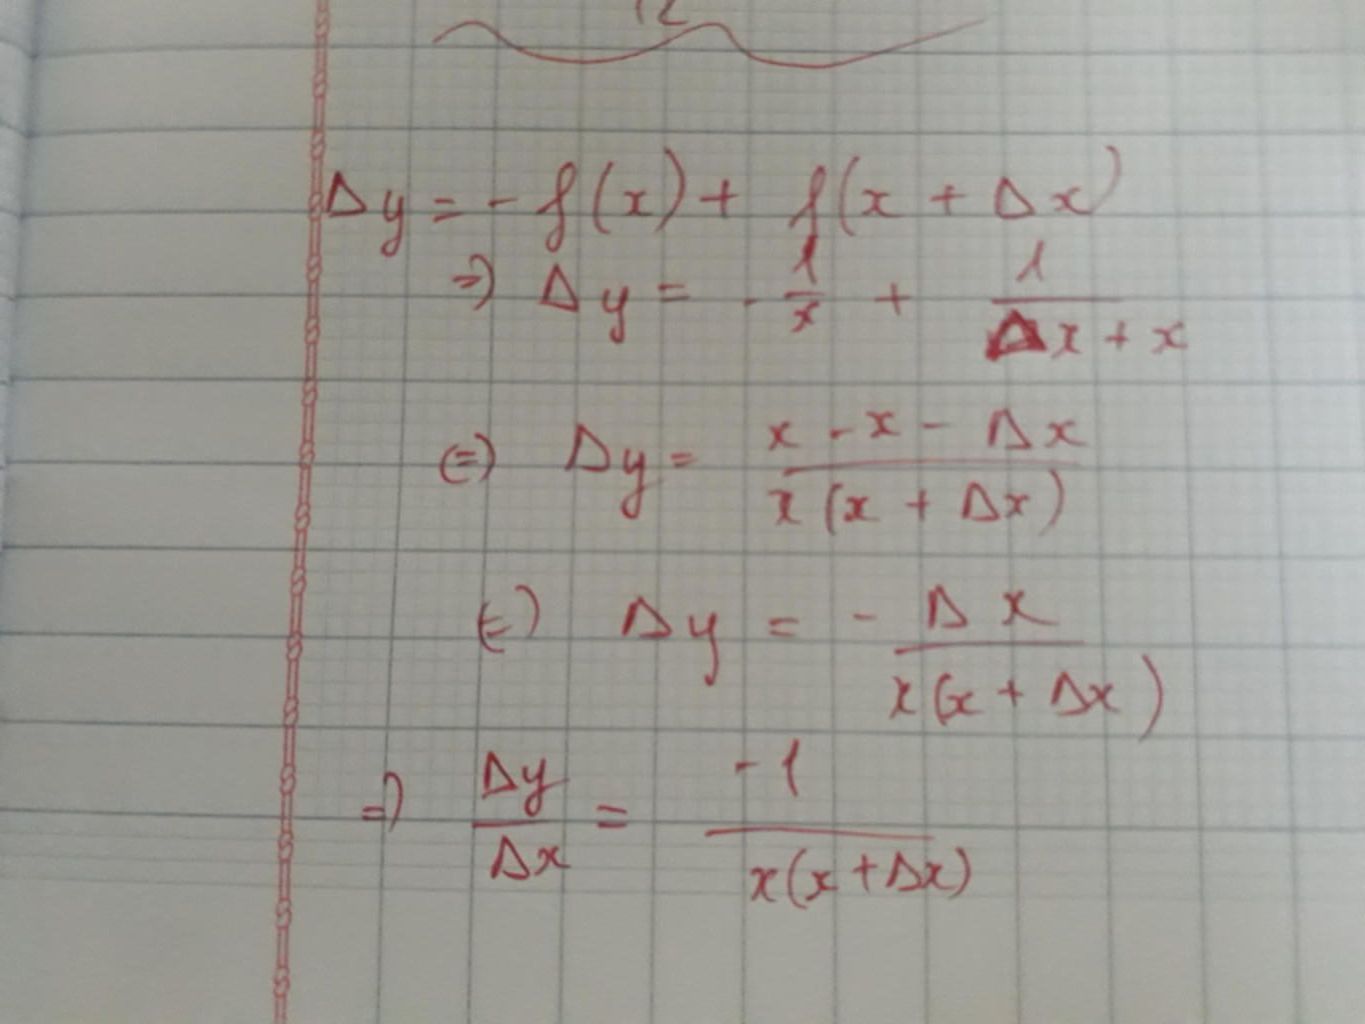 12
Δy = -f(x) + f(x + Δx)
⇒ Δy = - 1/x + 1/(Δx + x)
⇔ Δy = (x - x - Δx)/(x(x + Δx))
⇔ Δy = - Δx/(x(x + Δx))
⇒ Δy/Δx = -1/(x(x + Δx))